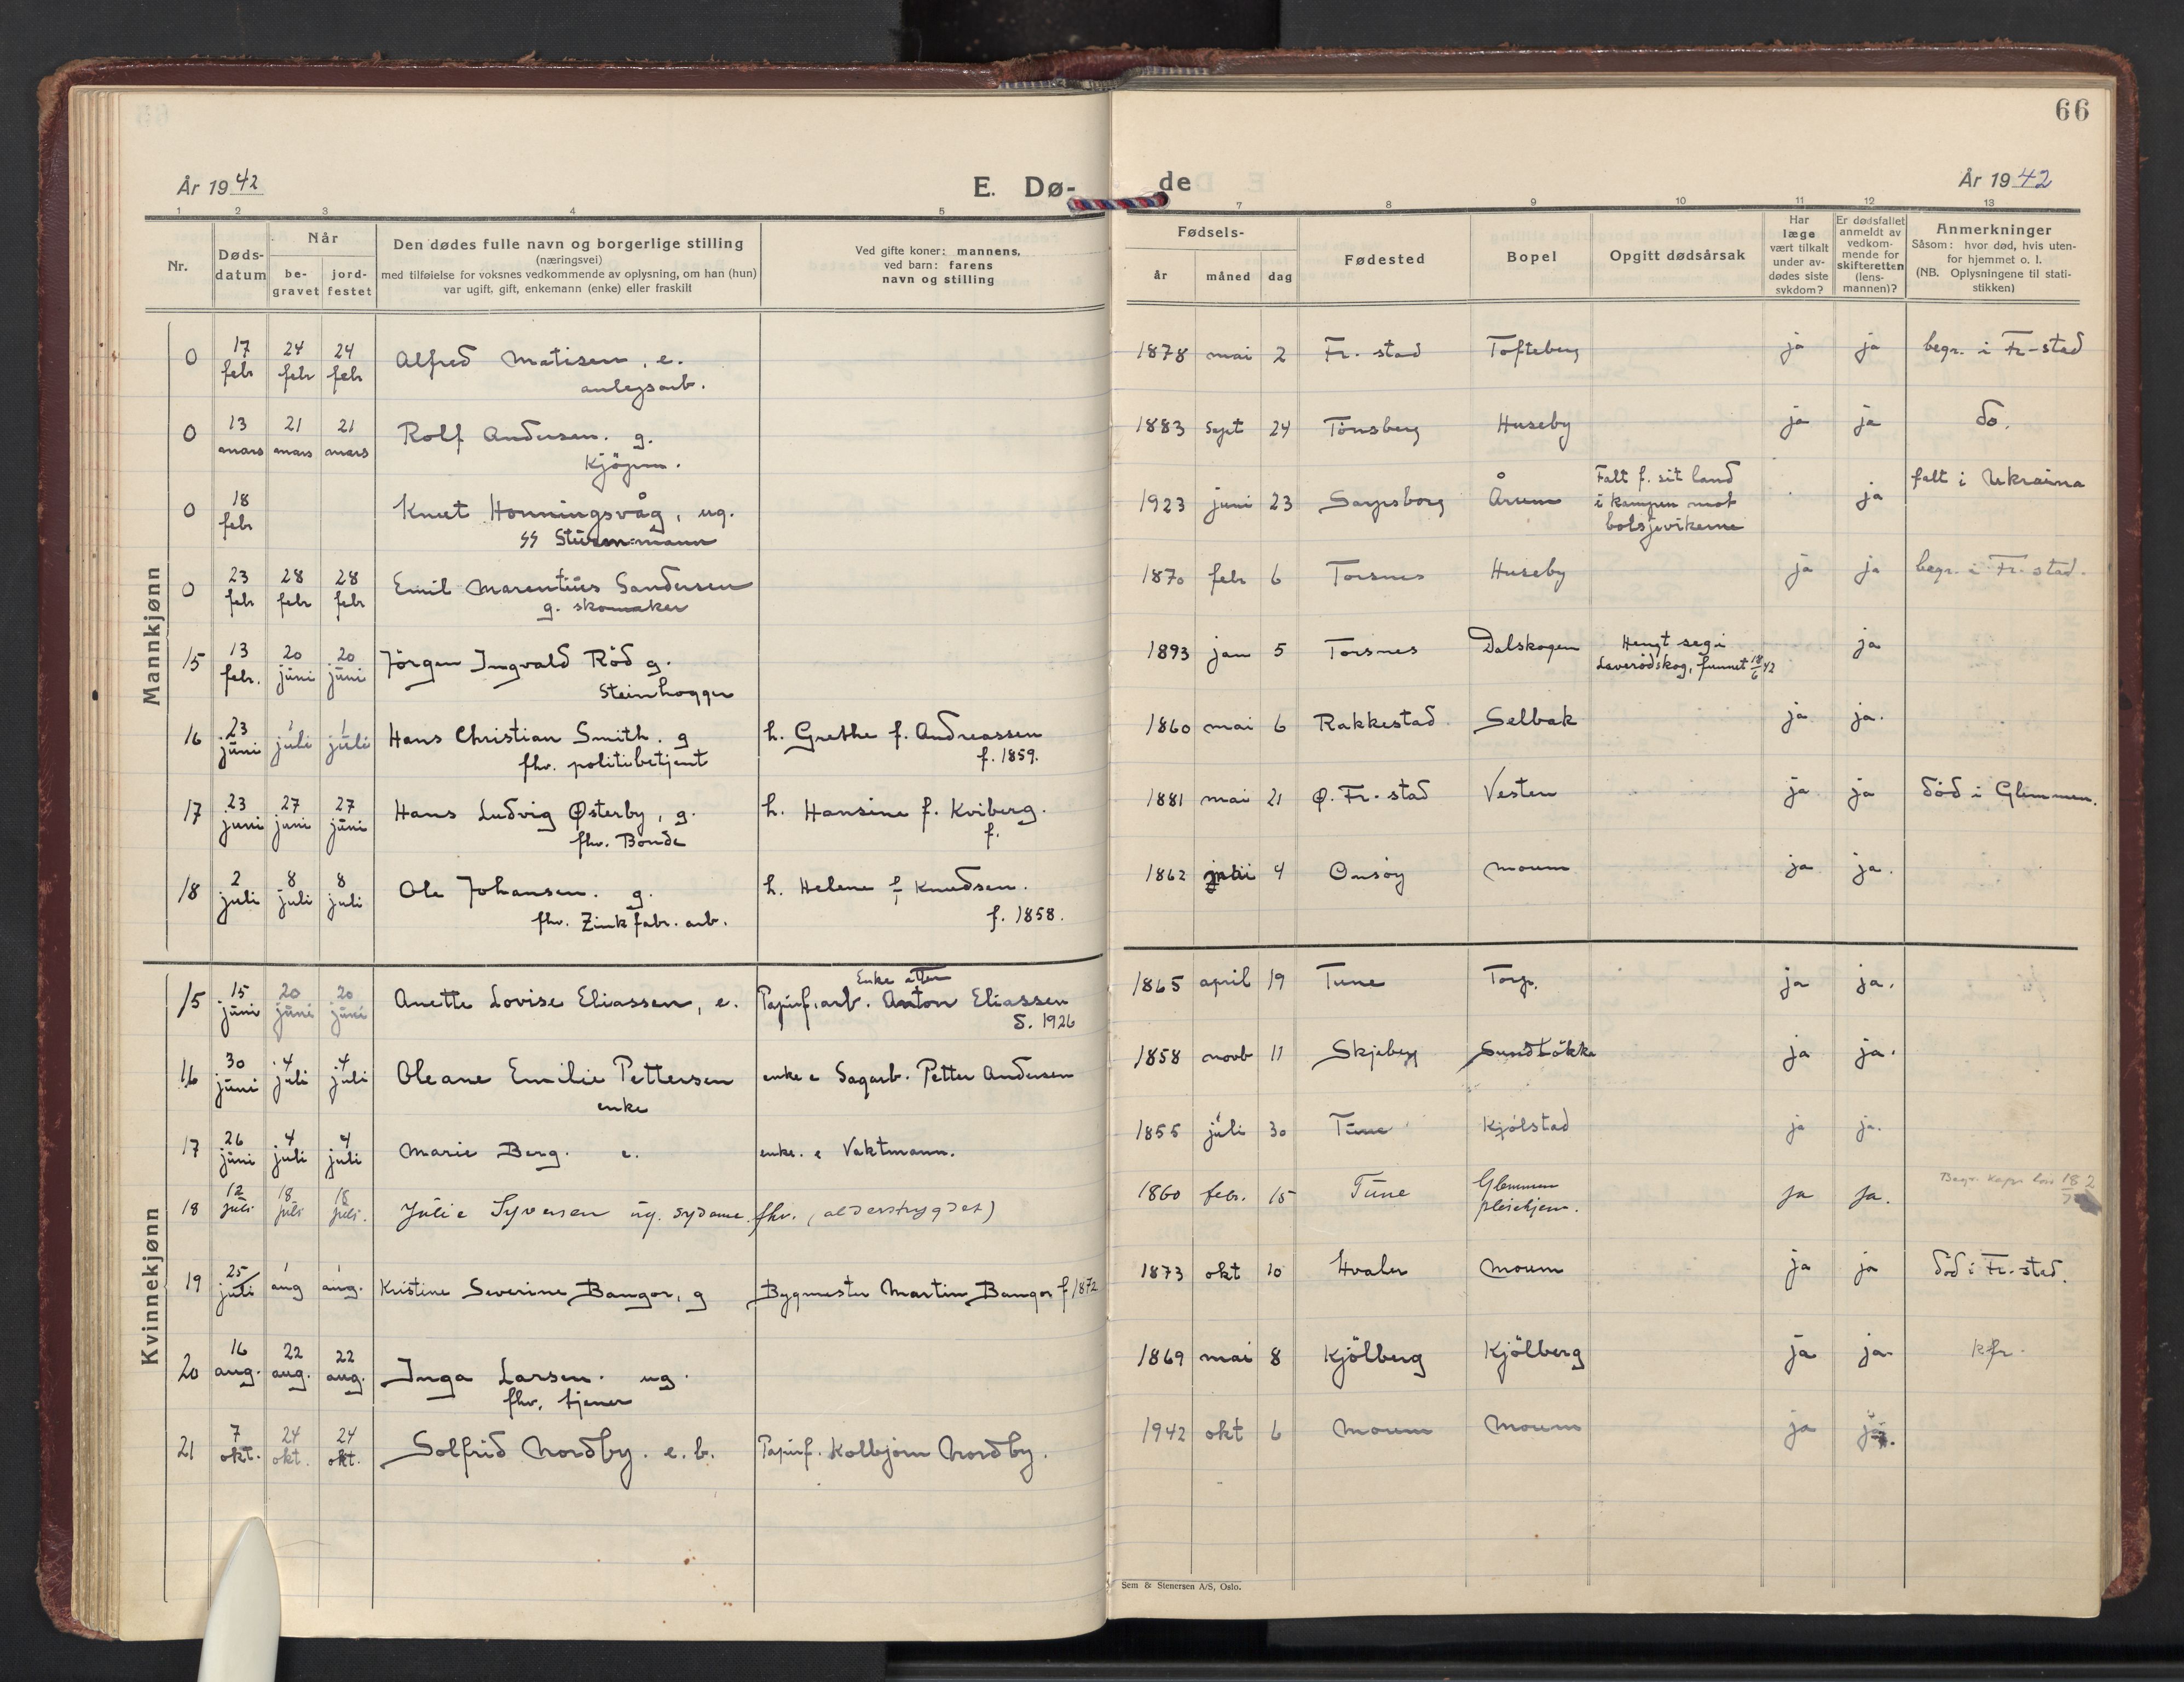 66
År 1942
E. Dø-
de
År 1942
1 2 3 4 5
7 8 9 10 11 12 13
Nr.
Døds-
datum
Når
be-
gravet
jord-
festet
Den dødes fulle navn og borgerlige stilling
(næringsvei)
med tilføielse for voksnes vedkommende av oplysning, om han (hun)
var ugift, gift, enkemann (enke) eller fraskilt
Ved gifte koner: mannens,
ved barn: farens
navn og stilling
Fødsels-
år måned dag
Fødested
Bopel
Opgitt dødsårsak
Har
læge
vært tilkalt
under av-
dødes siste
sykdom?
Er dødsfallet
anmeldt av
vedkom-
mende for
skifteretten
(lens-
mannen)?
Anmerkninger
Såsom: hvor død, hvis uten-
for hjemmet o. l.
(NB. Oplysningene til stati-
stikken)
Mannkjønn
0 17 febr 24 febr 24 febr Alfred Matisen, e. 1878 mai 2 Fr. stad Tofteberg ja ja begr. i Fr-stad
anlegsarb.
0 13 mars 21 mars 21 mars Rolf Andersen. g. 1883 Sept 24 Tönsberg Huseby ja ja do.
0 18 febr Knut Honningsvåg, ug. 1923 juni 23 Sarpsborg Årum Falt f. sit land ja falt i Ukraina
SS Sturm=mann i kampen mot
bolsjevikerne
0 23 febr 28 febr 28 febr Emil Marentius Sandersen 1870 febr 6 Torsnes Huseby ja ja begr. i Fr. stad.
g. skomaker
15 13 febr. 20 juni 20 juni Jörgen Ingvald Röd g. 1893 jan 5 Torsnes Dalskogen Hengt seg i ja
Steinhogger Laverödskog, funnet 18/6 42
16 23 juni 1 juli 1 juli Hans Christian Smith. g h. Grethe f. Andreassen 1860 mai 6 Rakkestad Selbak ja ja.
fhv. politibetjent f. 1859.
17 23 juni 27 juni 27 juni Hans Ludvig Østerby, g. h. Hansine f. Kviberg. 1881 mai 21 Ø. Fr-stad Vesten ja ja död i Glemmen.
fhv. Bonde f.
18 2 juli 8 juli 8 juli Ole Johansen. g. h. Helene f Knudsen. 1862 4 Onsøy Moum ja ja.
fhv. Zinkfabr. arb. f. 1858.
Kvinnekjønn
Enke etter
15 15 juni 20 juni 20 juni Anette Lovise Eliassen, e. Papirf. arb. Anton Eliassen 1865 april 19 Tune Torp. ja ja.
d. 1926
16 30 juni 4 juli 4 juli Oleane Emilie Pettersen enke e Sagarb. Petter Andersen 1858 novb 11 Skjeberg Sundlökka ja ja.
enke
17 26 juni 4 juli 4 juli Marie Berg. e. enke. e Vaktmann. 1855 juli 30 Tune Kjölstad ja ja.
18 12 juli 18 juli 18 juli. Julie Syversen ug. sydame. fhv. (alderstrygdet) 1860 febr. 15 Tune Glemmen ja ja.
pleiehjem.
19 25 juli 1 aug 1 aug. Kristine Severine Bangor, g Bygmester Martin Bangor f 1872 1873 okt 10 Hvaler Moum ja ja död i Fr.-stad.
20 16 aug. 22 aug. 22 aug. Inga Larsen. ug. 1869 mai 8 Kjölberg Kjölberg ja ja
fhv. tjener
21 7 okt. 24 okt. 24 okt. Solfrid Nordby. e. b. Papirf. Kolbjörn Nordby. 1942 okt 6 Moum Moum ja ja.
Sem & Stenersen A/S, Oslo.